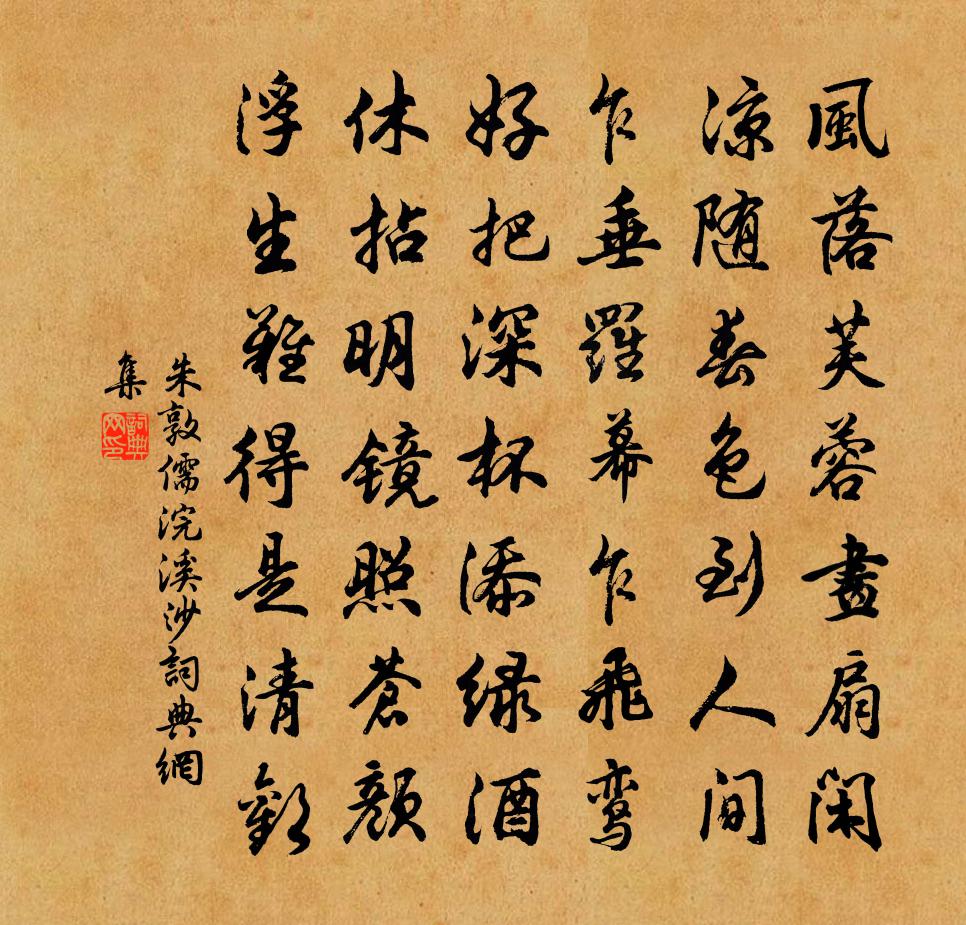 風落芙蓉畫扇闲
涼随春色到人间
乍垂羅幕乍飛鸾
好把深杯添绿酒
休拈明镜照蒼颜
浮生難得是清歡
朱敦儒浣溪沙詞典網
集
詞典网印